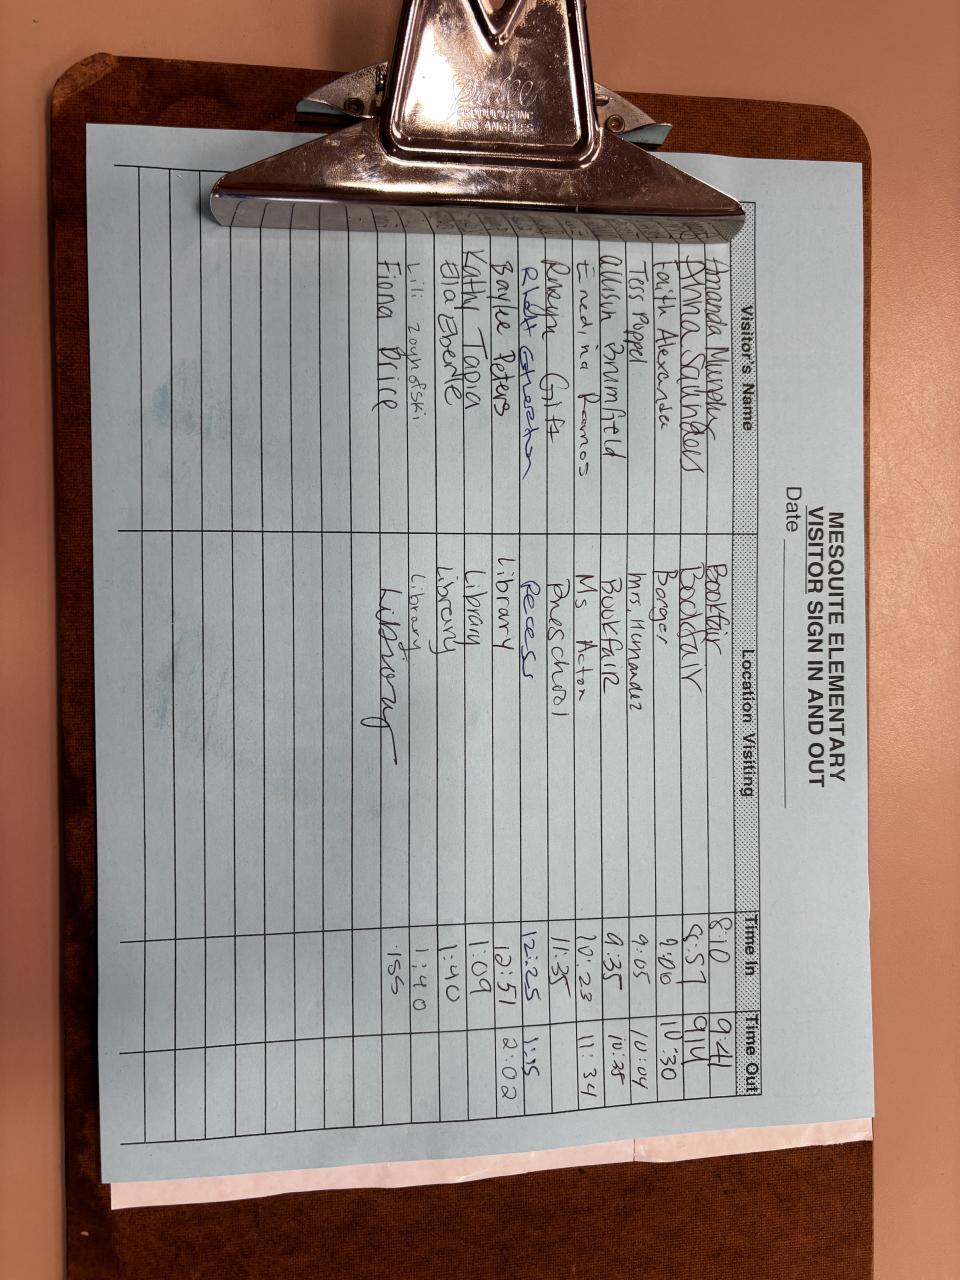 PRODUCTS INC
LOS ANGELES
MESQUITE ELEMENTARY
VISITOR SIGN IN AND OUT
Date
Visitor's Name Location Visiting Time In Time Out
Amanda Bookfair 8:10 9:41
Anna Saunders Bookfair 8:57 910
Faith Alexander Borger 9:00 10:30
Tess Poppel Mrs. Hernandez 9:05 10:04
Allison Brumfield BOOKFAIR 9:35
Enedina Ramos Ms Acton 10:23 11:34
Gift Preschool 11:35
Recess 12:25 1:15
Baylee Peters Library 12:51 2:02
Kathy Tapia Library 1:09
Ela Eberle Library 1:40
Lili Library 1:40
Fiona Price Library 155